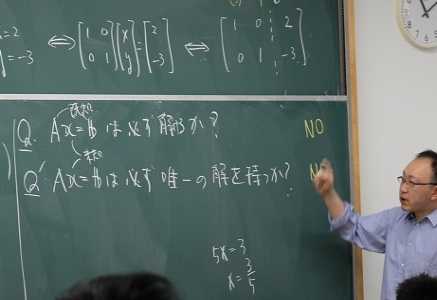 x=2
y=-3
⇔ [1 0; 0 1][x; y] = [2; -3] ⇔ (1 0 2; 0 1 -3)
Q. Ax=b は必ず解けるか? NO
Q' Ax=b は必ず唯一の解を持つか?
5x=3
x=3/5